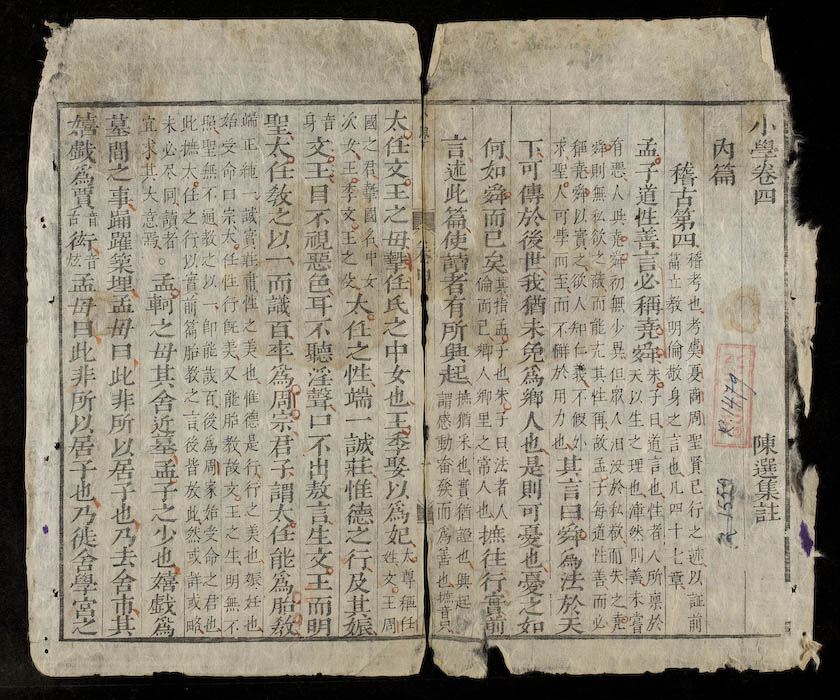 小學卷四
陳選集註
內篇
稽古第四 稽考也考虞夏商周聖賢已行之迹以証前篇立教明倫敬身之言也凡四十七章
孟子道性善言必稱堯舜 朱子曰道言也性者人所禀於天以生之理也渾然至善未嘗
有惡人與堯舜初無少異但眾人汩没於私欲而失之堯舜則無私欲之蔽而能充其性爾故孟子毎道性善而必
稱堯舜以實之欲人知仁義不假外求聖人可學而至而不懈於用力也 其言曰舜爲法於天
下可傳於後世我猶未免爲鄉人也是則可憂也憂之如
何如舜而已矣 其指孟子也朱子曰法者人倫而已鄉人鄉里之常人也 摭往行實前
言述此篇使讀者有所興起 摭猶采也實猶證也興起謂感動奮發而爲善也
太任文王之毋摯任氏之中女也王季娶以爲妃 太尊稱任姓文王周
國之君摯國名中女次女王季文王之父 太任之性端一誠莊惟德之行及其娠
音身 文王目不視惡色耳不聽淫聲口不出敖言生文王而明
聖太任敎之以一而識百卒爲周宗君子謂太任能爲胎敎
端正純一誠實莊肅性之美也惟德是行行之美也娠妊也始受命曰宗太任性行旣美又能胎敎故文王之生明無不
照聖無不通敎之以一卽能識百後爲周家始受命之君也此摭太任之行以實前篇胎敎之言後皆放此然或詳或略
未必尽同讀者宜求其大意焉 孟軻之毋其舍近墓孟子之少也嬉戲爲
墓間之事踊躍築埋孟毋曰此非所以居子也乃去舍市其
嬉戲爲賈 音古 衒 音炫 孟毋曰此非所以居子也乃徙舍學宮之
R-1479
R 1559